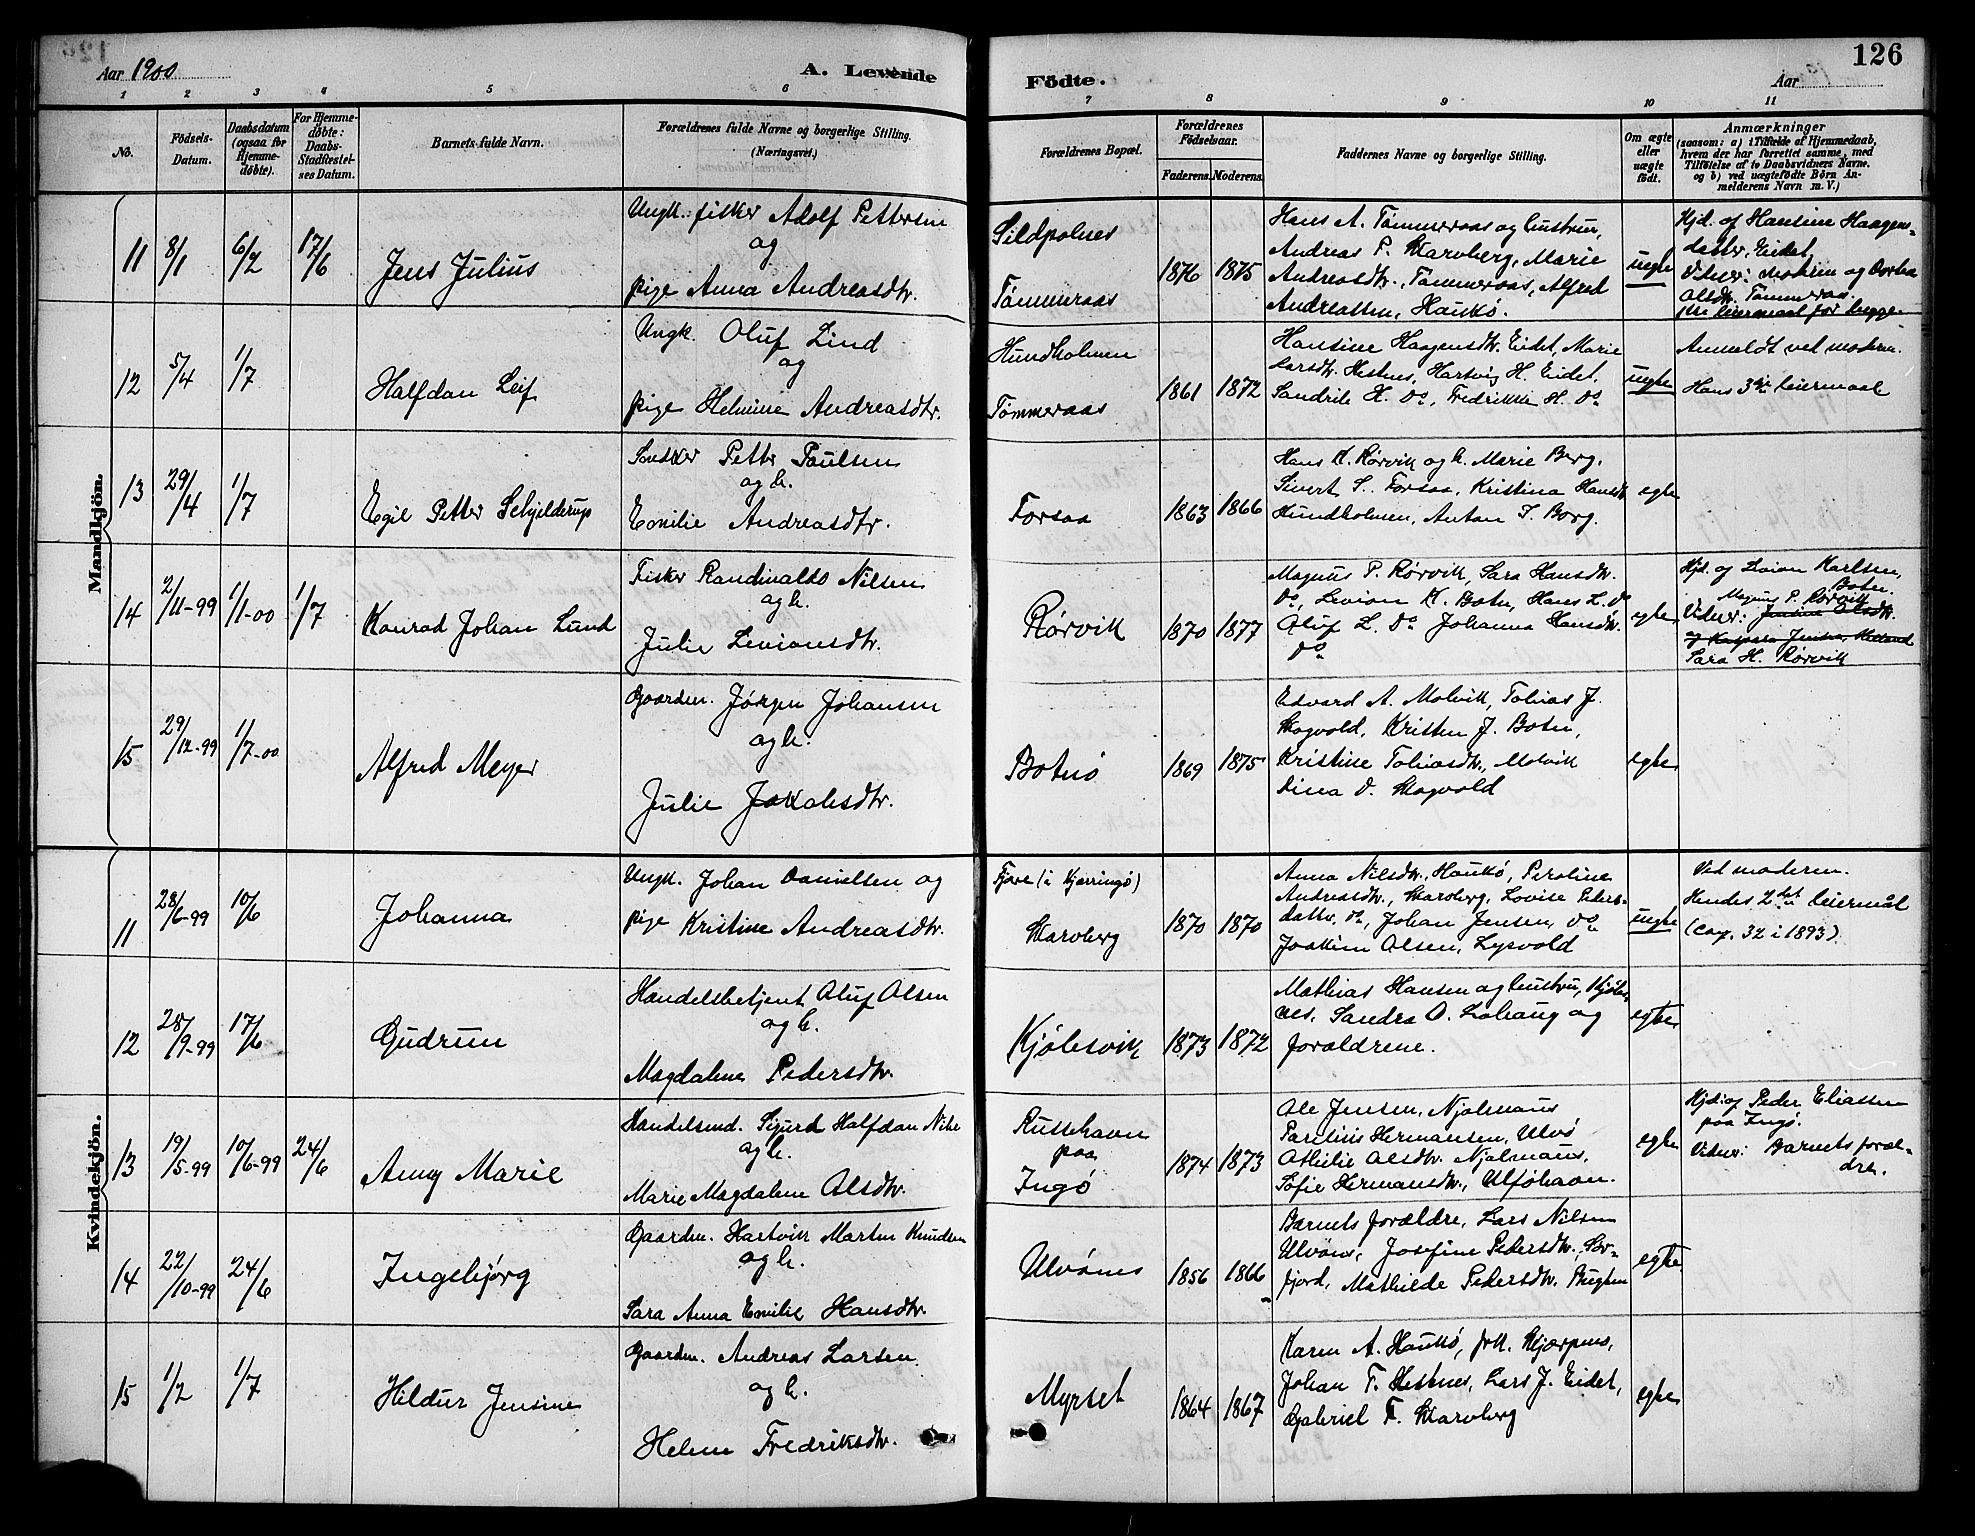 126
Aar 1900
A. Levende
Födte.
Aar
1 2 3 4 5 6 7 8 9 10 11
No.
Födsels-
Datum.
Daabsdatum
(ogsaa for
Hjemme-
døbte).
For Hjemme-
døbte:
Daabs-
Stadfæstel-
ses Datum.
Barnets fulde Navn.
Forældrenes fulde Navne og borgerlige Stilling.
(Næringsvei.)
Forældrenes Bopæl.
Forældrenes
Födselsaar.
Faderens. Moderens.
Faddernes Navne og borgerlige Stilling.
Om ægte
eller
uægte
födt.
Anmærkninger
(saasom: a) i Tilfælde af Hjemmedaab,
hvem der har forrettet samme, med
Tilføielse af to Daabsvidners Navne.
og b) ved uægtefödte Börn An-
melderens Navn m. V.)
Mandkjön.
11
8/1
6/2
17/6
Jens Julius
Ungk. fisker Adolf Pettersen
og
pige Anna Andreasdtr.
Sildpolnes
Tømmeraas
1876
1875
Hans A. Tømmeraas og hustru,
Andreas P. Skarvberg, Marie
Andreasdtr., Tømmeraas, Alfred
Andreassen, Haukø.
uegte
Hjd. af Hansine Haagens-
datter, Eidet,
Vidner: moderen og Dorthea
Olsdtr. Tømmeraas
leiermaal for begge.
12
5/4
1/7
Halfdan Leif
Ungk. Oluf Lind
og
pige Helmine Andreasdtr.
Hundholmen
Tømmeraas
1861
1872
Hansine Haagensdtr. Eidet, Marie
Larsdtr. Hestnes, Hartvig H. Eidet,
Sandrik H. Do, Fredrikke H. Do
uegte
Anmeldt ved moderen.
Hans 3die leiermaal
13
29/4
1/7
Egil Petter Schjelderup
Snedker Petter Paulsen
og h.
Emilie Andreasdtr.
Forsaa
1863
1866
Hans K. Rørvik og h. Marie Berg,
Sivert S. Forsaa, Kristina Hansdtr
Hundholmen, Anton T. Borg.
egte
14
2/11-99
1/1-00
1/7
Konrad Johan Lund
Fisker Randivaldo Nilsen
og h.
Julie Levionsdtr.
Rørvik
1870
1877
Magnus P. Rørvik, Sara Hansdtr.
Do, Levion K. Botn, Hans L. Do
Oluf L. Do Johanna Hansdtr.
Do
egte
Hjd. og Levion Karlsen,
Botn.
Magnus P. Rørvik
Vidner: Jensine Olsdtr.
Sara H. Rørvik
15
29/12-99
1/7-00
Alfred Meyer
Gaardm. Jørgen Johansen
og h.
Julie Jakobsdtr.
Botnø
1869
1875
Edvard A. Molvik, Tobias J.
Skogvold, Kristen J. Botn,
Kristine Tobiasdtr., Molvik
Dina O. Skogvold
egte
Kvindekjön.
11
28/6-99
10/6
Johanna
Ungk. Johan Danielsen og
pige Kristine Andreasdtr.
Fjøre (i Kjerringø)
Skarvberg
1870
1870
Anna Nilsdtr., Haukø, Peroline
Andreasdtr., Skarvberg, Lovise Peders-
datter, do, Johan Jensen, do
Joakim Olsen, Lysvold
uegte
Ved moderen.
Hendes 2det leiermål
(conf. 32 i 1893).
12
28/9-99
17/6
Gudrun
Handelsbetjent Oluf Olsen
og h.
Magdalene Pedersdtr.
Kjølsvik
1873
1872
Mathias Hansen og hustru, Kjøls-
nes, Sandra O. Lohaug og
forældrene.
egte
13
19/5-99
10/6-99
24/6
Anny Marie
Handelsmd. Sigurd Halfdan Nilse
og h.
Marie Magdalene Olsdtr.
Russehavn
paa
Ingø
1874
1873
Ole Jensen, Njolmaus
Parelius Hermansen, Ulvø
Othilie Olsdtr. Njolmaus,
Sofie Hermansdtr., Ulföhavn.
egte
Hjd. af Peder Eliassen
paa Ingø.
Vidner: Barnets foræl-
dre.
14
22/10-99
24/6
Ingebjörg
Gaardm. Hartvik Martin Knudsen
og h.
Sara Anna Emilie Hansdtr.
Ulvönes
1856
1866
Barnets forældre, Lars Nilsen
Ulvönes, Josefine Pedersdtr., Sør-
fjord, Mathilde Pedersdtr. Bugten
egte
15
1/2
1/7
Hildur Jensine
Gaardm. Andreas Larsen
og h.
Helene Fredriksdtr.
Myrset
1864
1867
Karen A. Haukø, frk. Kjærpenes,
Johan F. Hestnes, Lars J. Eidet,
Gabriel F. Skarvberg
egte